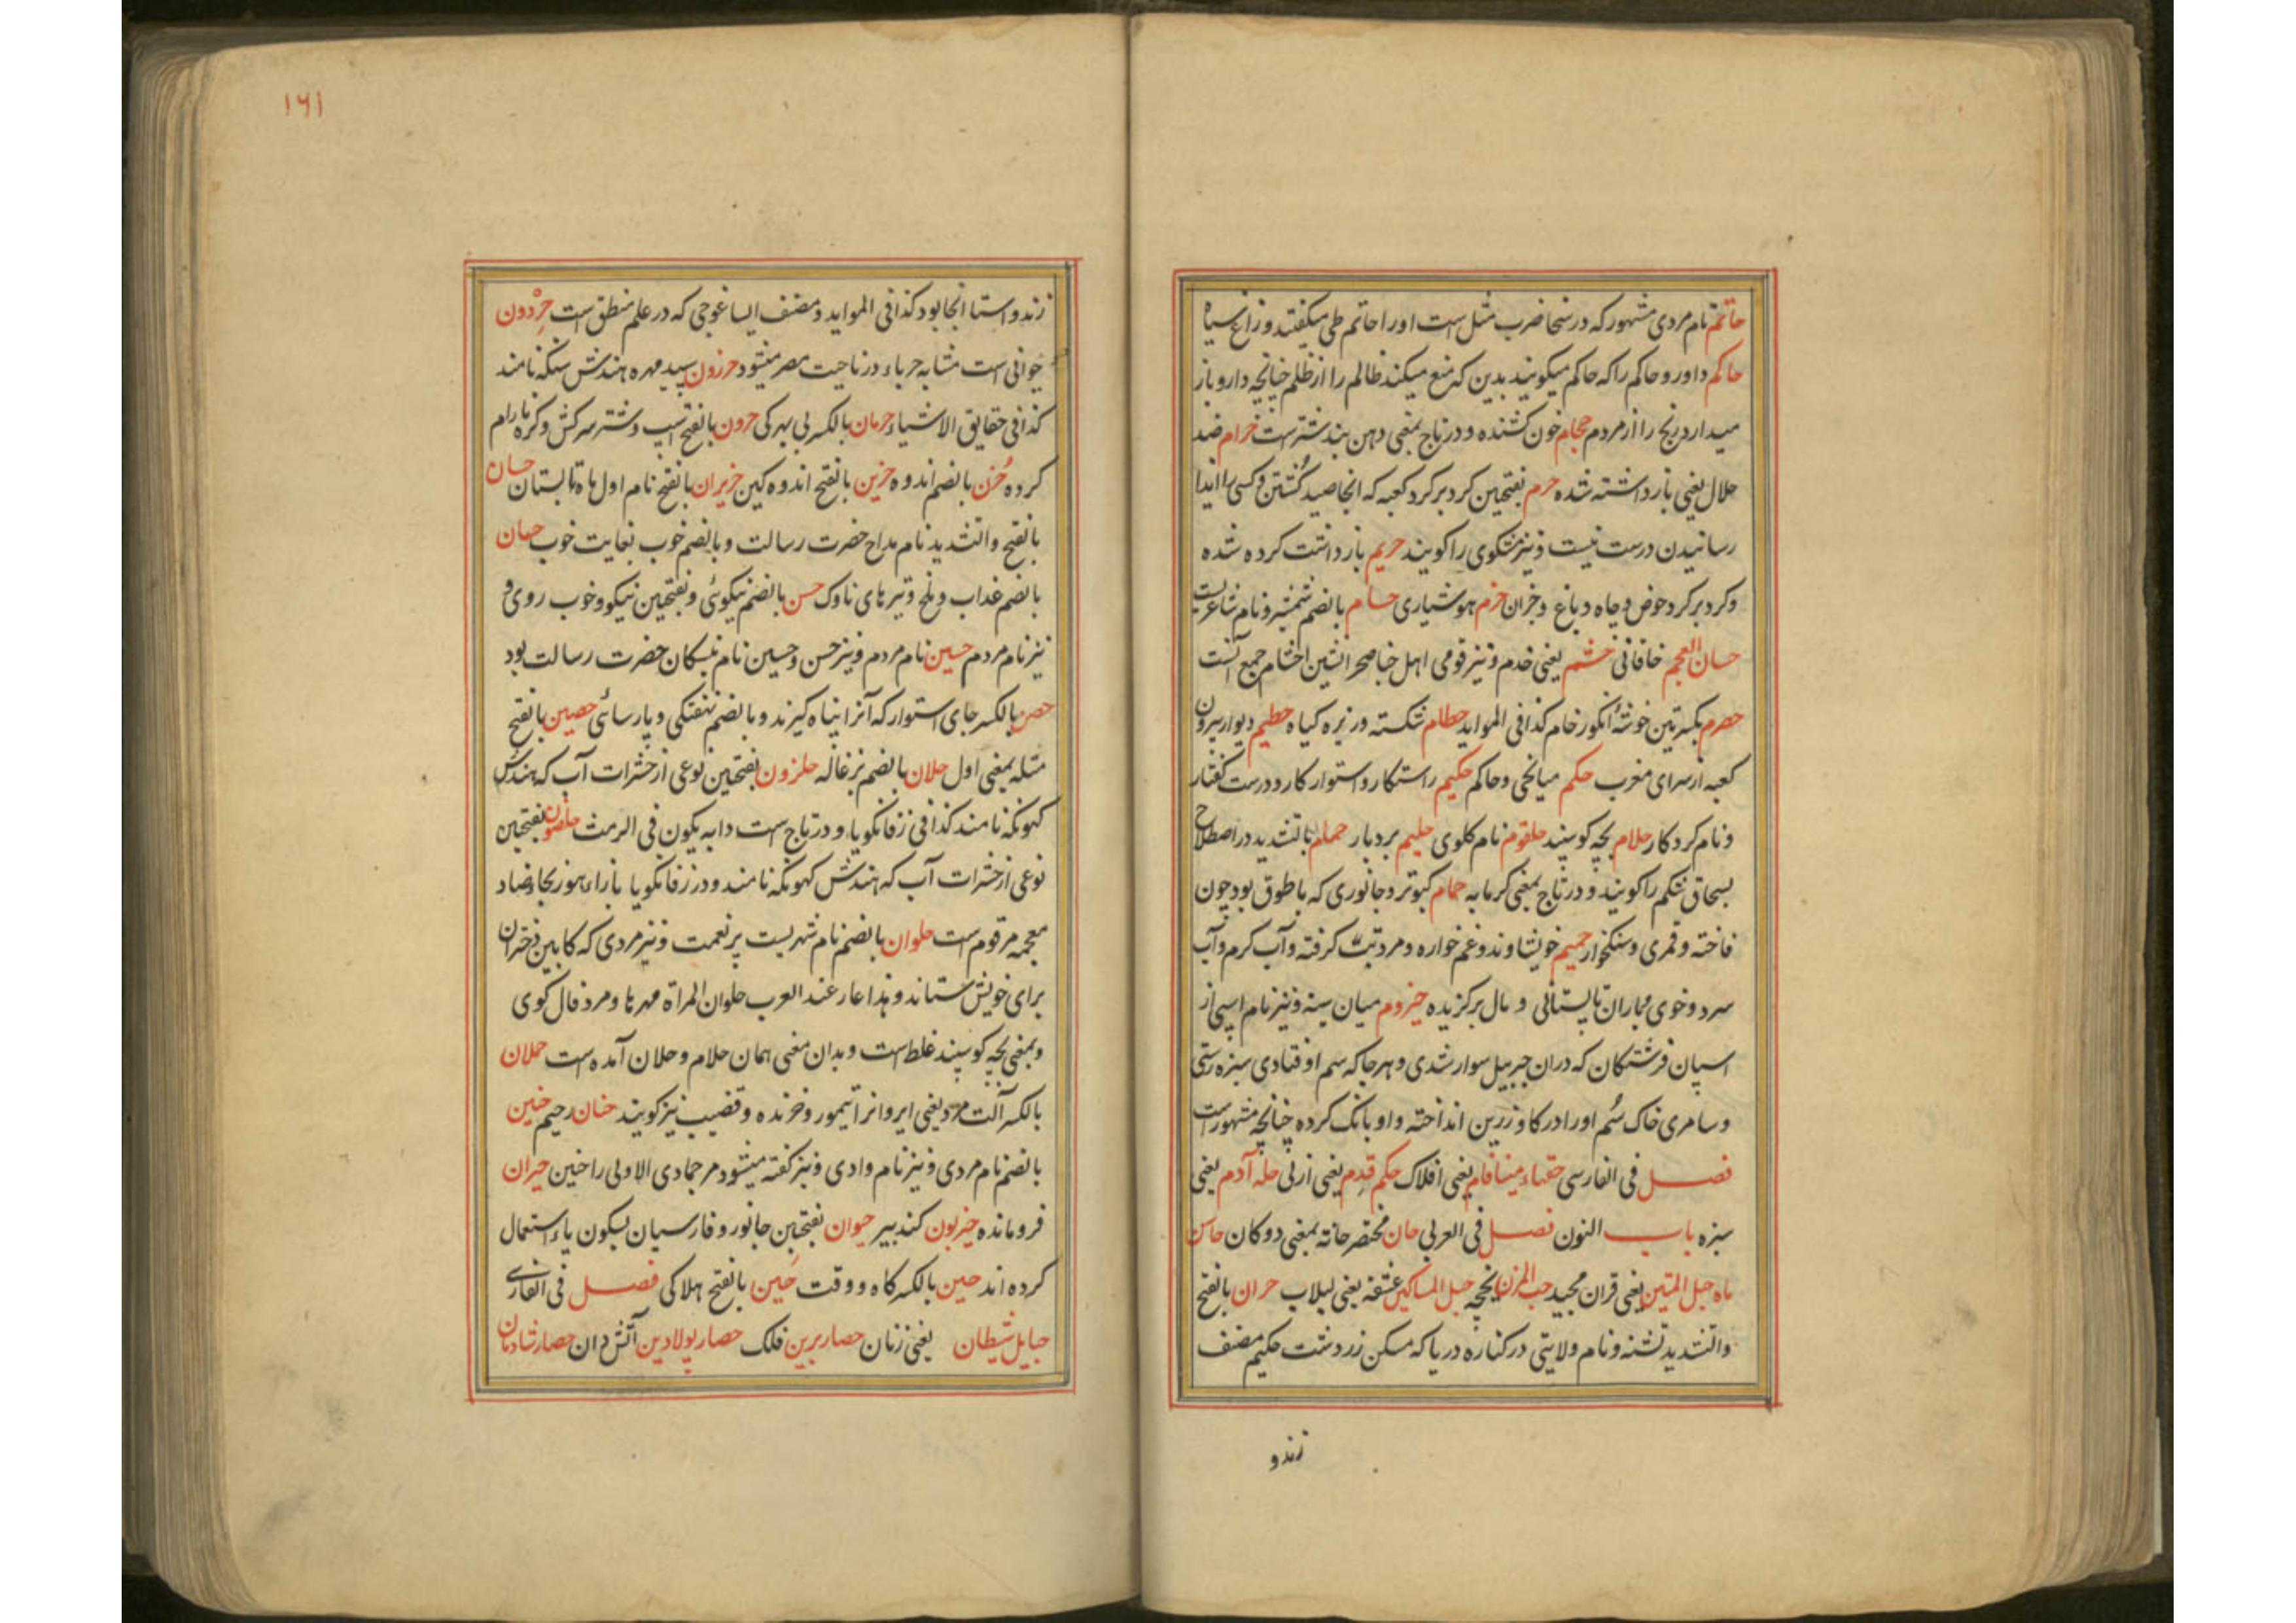 حاتم نام مردی مشهور که در سخا ضرب مثل است او را حاتم طی میگفتند و زاغ سیاه
حاکم داور و حاکم را که حاکم میگویند بدین که منع میکند ظالم را از ظلم چنانچه دارو باز
میدارد رنج را از مردم حجام خون کشنده و در تاج بمعنی دهن بند شترست حرام ضد
حلال یعنی بازداشته شده حرم بفتحتین کرد بر کرد کعبه که آنجا صید کشتن و کسی را ایذا
رسانیدن درست نیست و نیز مشکوی را کویند حریم بازداشت کرده شده
و کرد بر کرد حوض و چاه و باغ و جزان حزم هوشیاری حسام بالضم شمشیر و نام شاعریست
حسان العجم خاقانی حشم یعنی خدم و نیز قومی اهل خبا صحرانشین احشام جمع آنست
حصرم بکسرتین خوشهٔ انکور خام کذا فی الموایذ حطام شکسته و ریزه کیاه حطیم دیوار بیرون
کعبه از سرای مغرب حکم میانجی و حاکم حکیم راستکار و استوار کار و درست کفتار
و نام کردکار حلام بچه کوسپند حلقوم نام کلوی حلیم بردبار حمام بالتشدید در اصطلاح
بسحاق شکم را کویند و در تاج بمعنی کرمابه حمام کبوتر و جانوری که با طوق بود چون
فاخته و قمری و سنکخوار حمیم خویشاوند و غم خواره و مرد تب گرفته و آب کرم و آب
سرد و خوی بیماران تابستانی و مال برکزیده حیزوم میان سینه و نیز نام اسپی از
اسپان فرشتکان که دران جبریل سوار شدی و هر جا که سم او فتادی سبزه رستی
و سامری خاک سم او را در کاو زرین انداخته و او بانک کرده چنانچه مشهور است
فصل فی الفارسی حقهاء مینافام یعنی افلاک حکم قدم یعنی ازلی حله آدم یعنی
سبزه باب النون فصل فی العربی حان مختصر حانه بمعنی دوکان
ماه حبل المتین یعنی قران مجید حب المزن یخچه حبل المساکین عشقه یعنی لبلاب حران بالفتح
والتشدید تشنه و نام ولایتی در کناره دریا که مسکن زردشت حکیم مصنف
زند و
۱۶۱
زند و استا آنجا بود کذا فی الموایذ و مصنف ایساغوجی که در علم منطق است حردون
حیوانی است مشابه حرباء در ناحیت مصر میشود حرزون سپید مهره هندش سنکه نامند
کذا فی حقایق الاشیاء حرمان بالکسر بی بهرکی حرون بالفتح اسپ و شتر سرکش و کره نارام
کرده حزن بالضم اندوه حزین بالفتح اندوه کین حزیران بالفتح نام اول ماه تابستان حسان
بالفتح والتشدید نام مداح حضرت رسالت و بالضم خوب بغایت خوب حسبان
بالضم عذاب و ملخ و تیرهای ناوک حسن بالضم نیکوئی و بفتحتین نیکو و خوب روی و
نیز نام مردم حسین نام مردم و نیز حسن و حسین نام نبسکان حضرت رسالت بود
حصن بالکسر جای استوار که آنرا پناه کیرند و بالضم نهفتکی و پارسائی حصین بالفتح
مثله بمعنی اول حلان بالضم بزغاله حلزون بفتحتین نوعی از حشرات آب که هندش
کهونکه نامند کذا فی زفانکویا و در تاج است دابه یکون فی الرمث حلضون بفتحتین
نوعی از حشرات آب که هندش کهونکه نامند و در زفانکویا بازاء هوز بجای ضاد
معجمه مرقوم است حلوان بالضم نام شهریست پر نعمت و نیز مردی که کابین دختران
برای خویش ستاند و هذا عار عند العرب حلوان المراة مهرها و مرد فال کوی
و بمعنی بچه کوسپند غلط است و بدان معنی همان حلام و حلان آمده است حملان
بالکسر آلت مرد یعنی ایر و آنرا تیمور و خرنده و قضیب نیز کویند حنان رحیم حنین
بالضم نام مردی و نیز نام وادی و نیز کفته میشود مر جمادی الاولی را حنین حیران
فرومانده حیزبون کنده پیر حیوان بفتحتین جانور و فارسیان بسکون یاء استعمال
کرده اند حین بالکسر کاه و وقت حین بالفتح هلاکی فصل فی الفارسی
حبایل شیطان یعنی زنان حصار برین فلک حصار پولادین آتش دان حصار شادمان